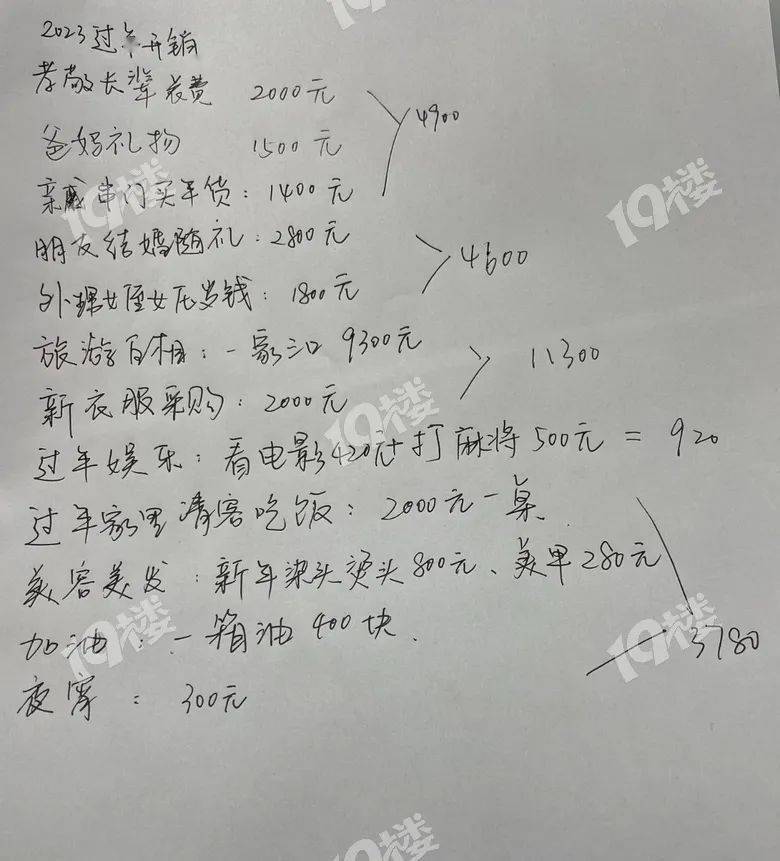 2023过年开销
孝敬长辈花费 2000元
爸妈礼物 1500元
4900
亲戚串门买年货：1400元
朋友结婚随礼：2800元
4600
外甥女侄女压岁钱：1800元
旅游自相：一家三口 9300元
11300
新衣服采购：2000元
过年娱乐：看电影420元+打麻将500元 = 920
过年家里请客吃饭：2000元一桌
美容美发：新年染头烫头800元、美甲280元
加油：一箱油400块.
3780
夜宵：300元
19楼
19楼
19楼
19楼
19楼
19楼
19楼
19楼